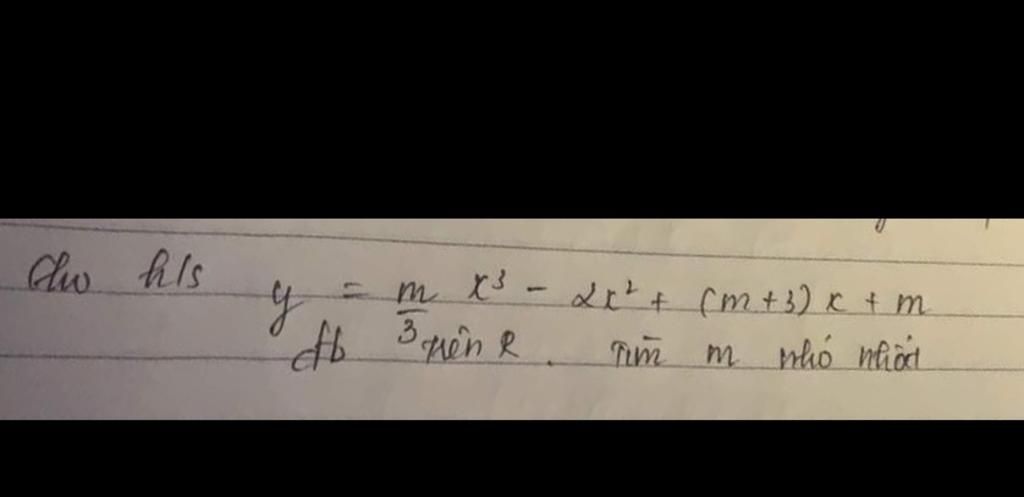 Cho h/s y = m/3 x³ - 2x² + (m+3)x + m
đb trên R. Tìm m nhỏ nhất